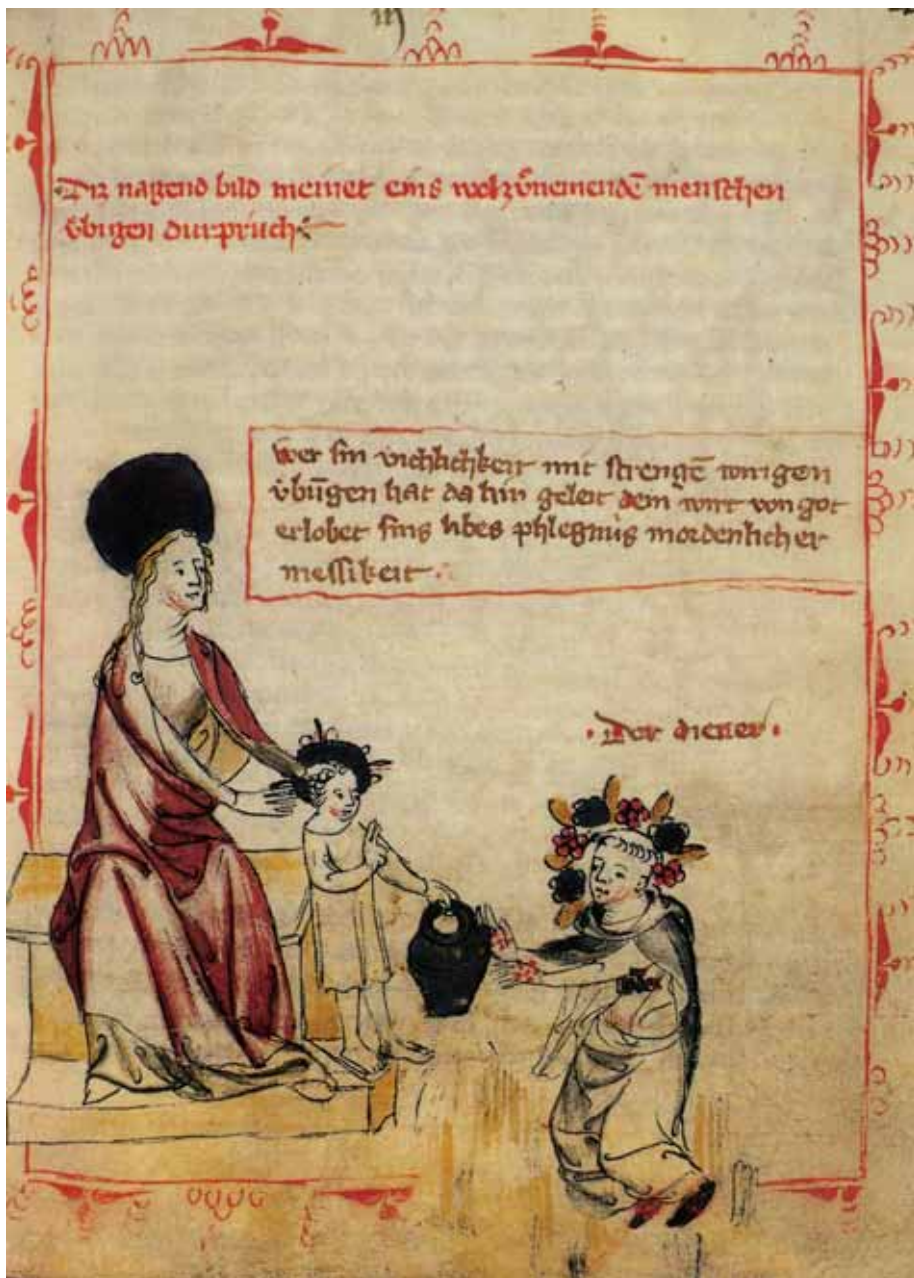 Diz nagend bild meinet eins wolzůnemendē menschen
übigen durpruch
wer sin vichlichkeit mit strengē wirigen
übūgen hat da hin geleit dem wirt von got
erlobet sins libes phlegnus mordenlicher
messikeit
Der diener